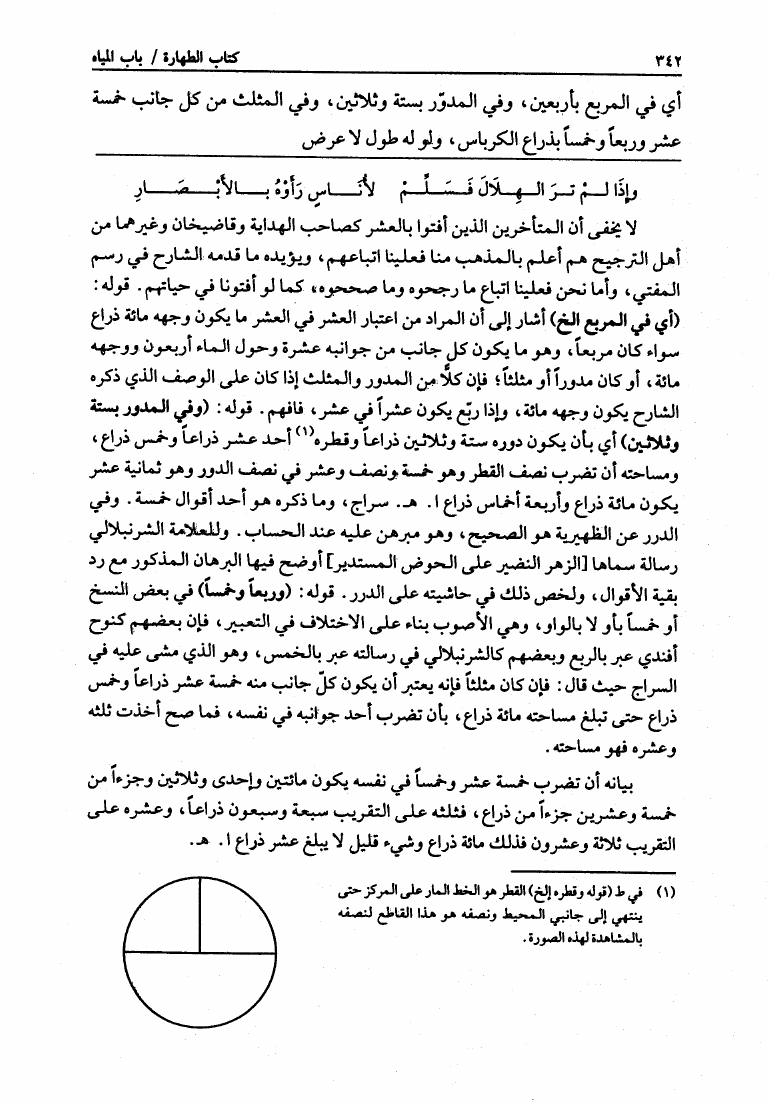 ٣٤٢
كتاب الطهارة / باب المياه
أي في المربع بأربعين، وفي المدوّر بستة وثلاثين، وفي المثلث من كل جانب خمسة
عشر وربعاً وخمساً بذراع الكرباس، ولو له طول لا عرض
وإِذَا لَـمْ تَـرَ الـهِـلَالَ فَـسَـلِّـمْ لأُنَـاسٍ رَأَوْهُ بـالأَبْـصَـارِ
لا يخفى أن المتأخرين الذين أفتوا بالعشر كصاحب الهداية وقاضيخان وغيرهما من
أهل الترجيح هم أعلم بالمذهب منا فعلينا اتباعهم، ويؤيده ما قدمه الشارح في رسم
المفتي، وأما نحن فعلينا اتباع ما رجحوه وما صححوه، كما لو أفتونا في حياتهم. قوله:
(أي في المربع الخ) أشار إلى أن المراد من اعتبار العشر في العشر ما يكون وجهه مائة ذراع
سواء كان مربعاً، وهو ما يكون كل جانب من جوانبه عشرة وحول الماء أربعون ووجهه
مائة، أو كان مدوراً أو مثلثاً؛ فإن كلًّا من المدور والمثلث إذا كان على الوصف الذي ذكره
الشارح يكون وجهه مائة، وإذا ربّع يكون عشراً في عشر، فافهم. قوله: (وفي المدور بستة
وثلاثين) أي بأن يكون دوره ستة وثلاثين ذراعاً وقطره(١) أحد عشر ذراعاً وخمس ذراع،
ومساحته أن تضرب نصف القطر وهو خمسة ونصف وعشر في نصف الدور وهو ثمانية عشر
يكون مائة ذراع وأربعة أخماس ذراع ا. هـ. سراج، وما ذكره هو أحد أقوال خمسة. وفي
الدرر عن الظهيرية هو الصحيح، وهو مبرهن عليه عند الحساب. وللعلامة الشرنبلالي
رسالة سماها [الزهر النضير على الحوض المستدير] أوضح فيها البرهان المذكور مع رد
بقية الأقوال، ولخص ذلك في حاشيته على الدرر. قوله: (وربعاً وخمساً) في بعض النسخ
أو خمساً بأو لا بالواو، وهي الأصوب بناء على الاختلاف في التعبير، فإن بعضهم كنوح
أفندي عبر بالربع وبعضهم كالشرنبلالي في رسالته عبر بالخمس، وهو الذي مشى عليه في
السراج حيث قال: فإن كان مثلثاً فإنه يعتبر أن يكون كلّ جانب منه خمسة عشر ذراعاً وخمس
ذراع حتى تبلغ مساحته مائة ذراع، بأن تضرب أحد جوانبه في نفسه، فما صح أخذت ثلثه
وعشره فهو مساحته.
بيانه أن تضرب خمسة عشر وخمساً في نفسه يكون مائتين وإحدى وثلاثين وجزءاً من
خمسة وعشرين جزءاً من ذراع، فثلثه على التقريب سبعة وسبعون ذراعاً، وعشره على
التقريب ثلاثة وعشرون فذلك مائة ذراع وشيء قليل لا يبلغ عشر ذراع ا. هـ.
(١) في ط (قوله وقطره إلخ) القطر هو الخط المار على المركز حتى
ينتهي إلى جانبي المحيط ونصفه هو هذا القاطع لنصفه
بالمشاهدة لهذه الصورة.